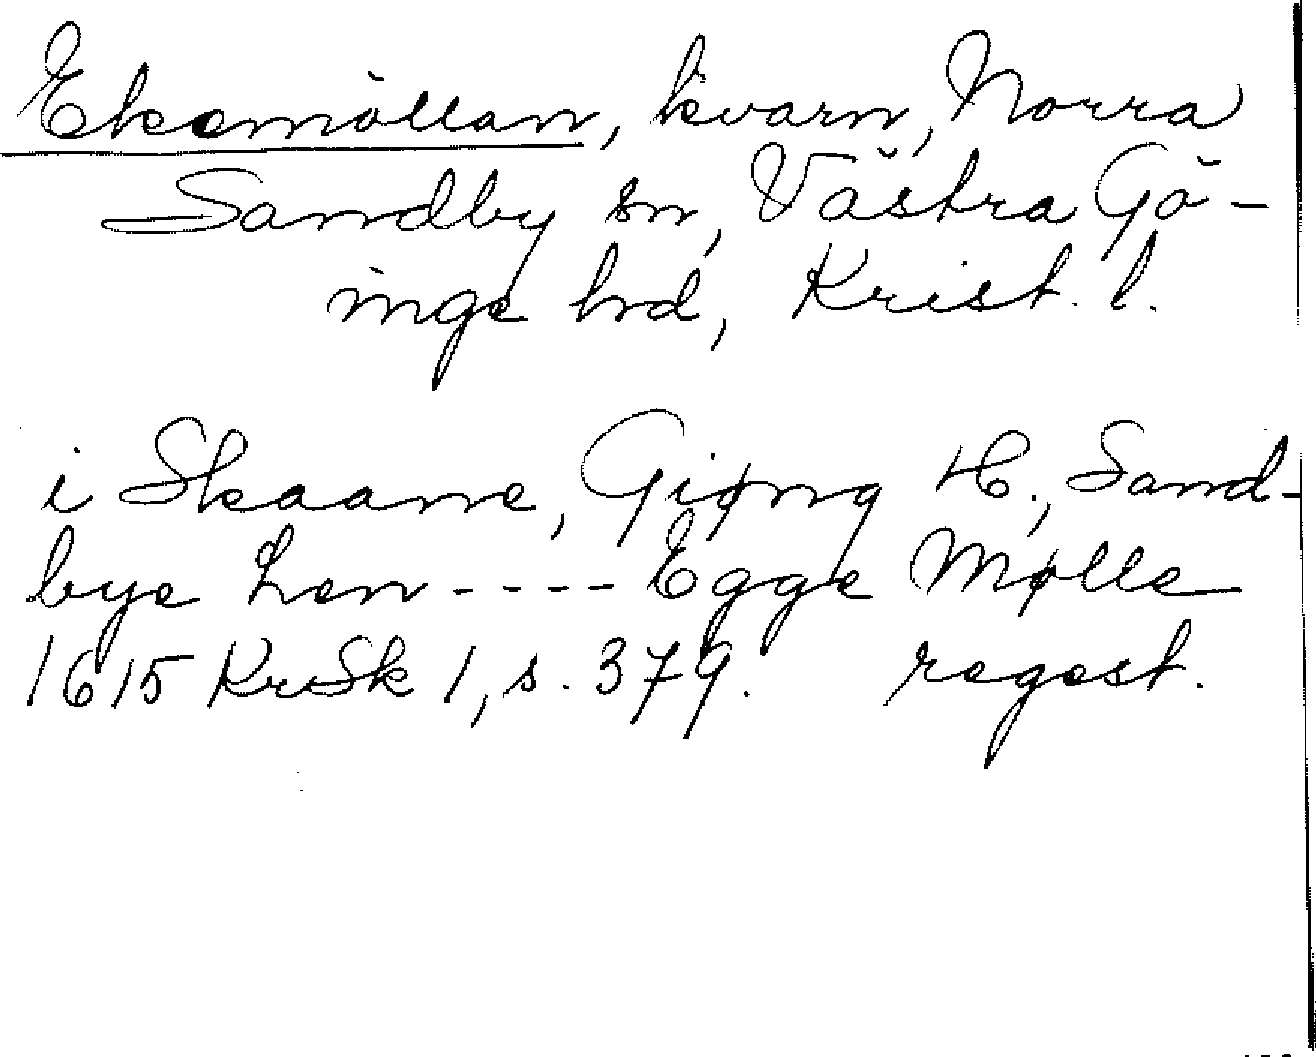 Ekemöllan, kvarn, Norra
Sandby sn, Västra Gö-
inge hrd, Krist. l.
i Skaane, Giøng H., Sand-
bye Len ---- Egge Mølle
1615 KrSk 1, s. 379. regest.